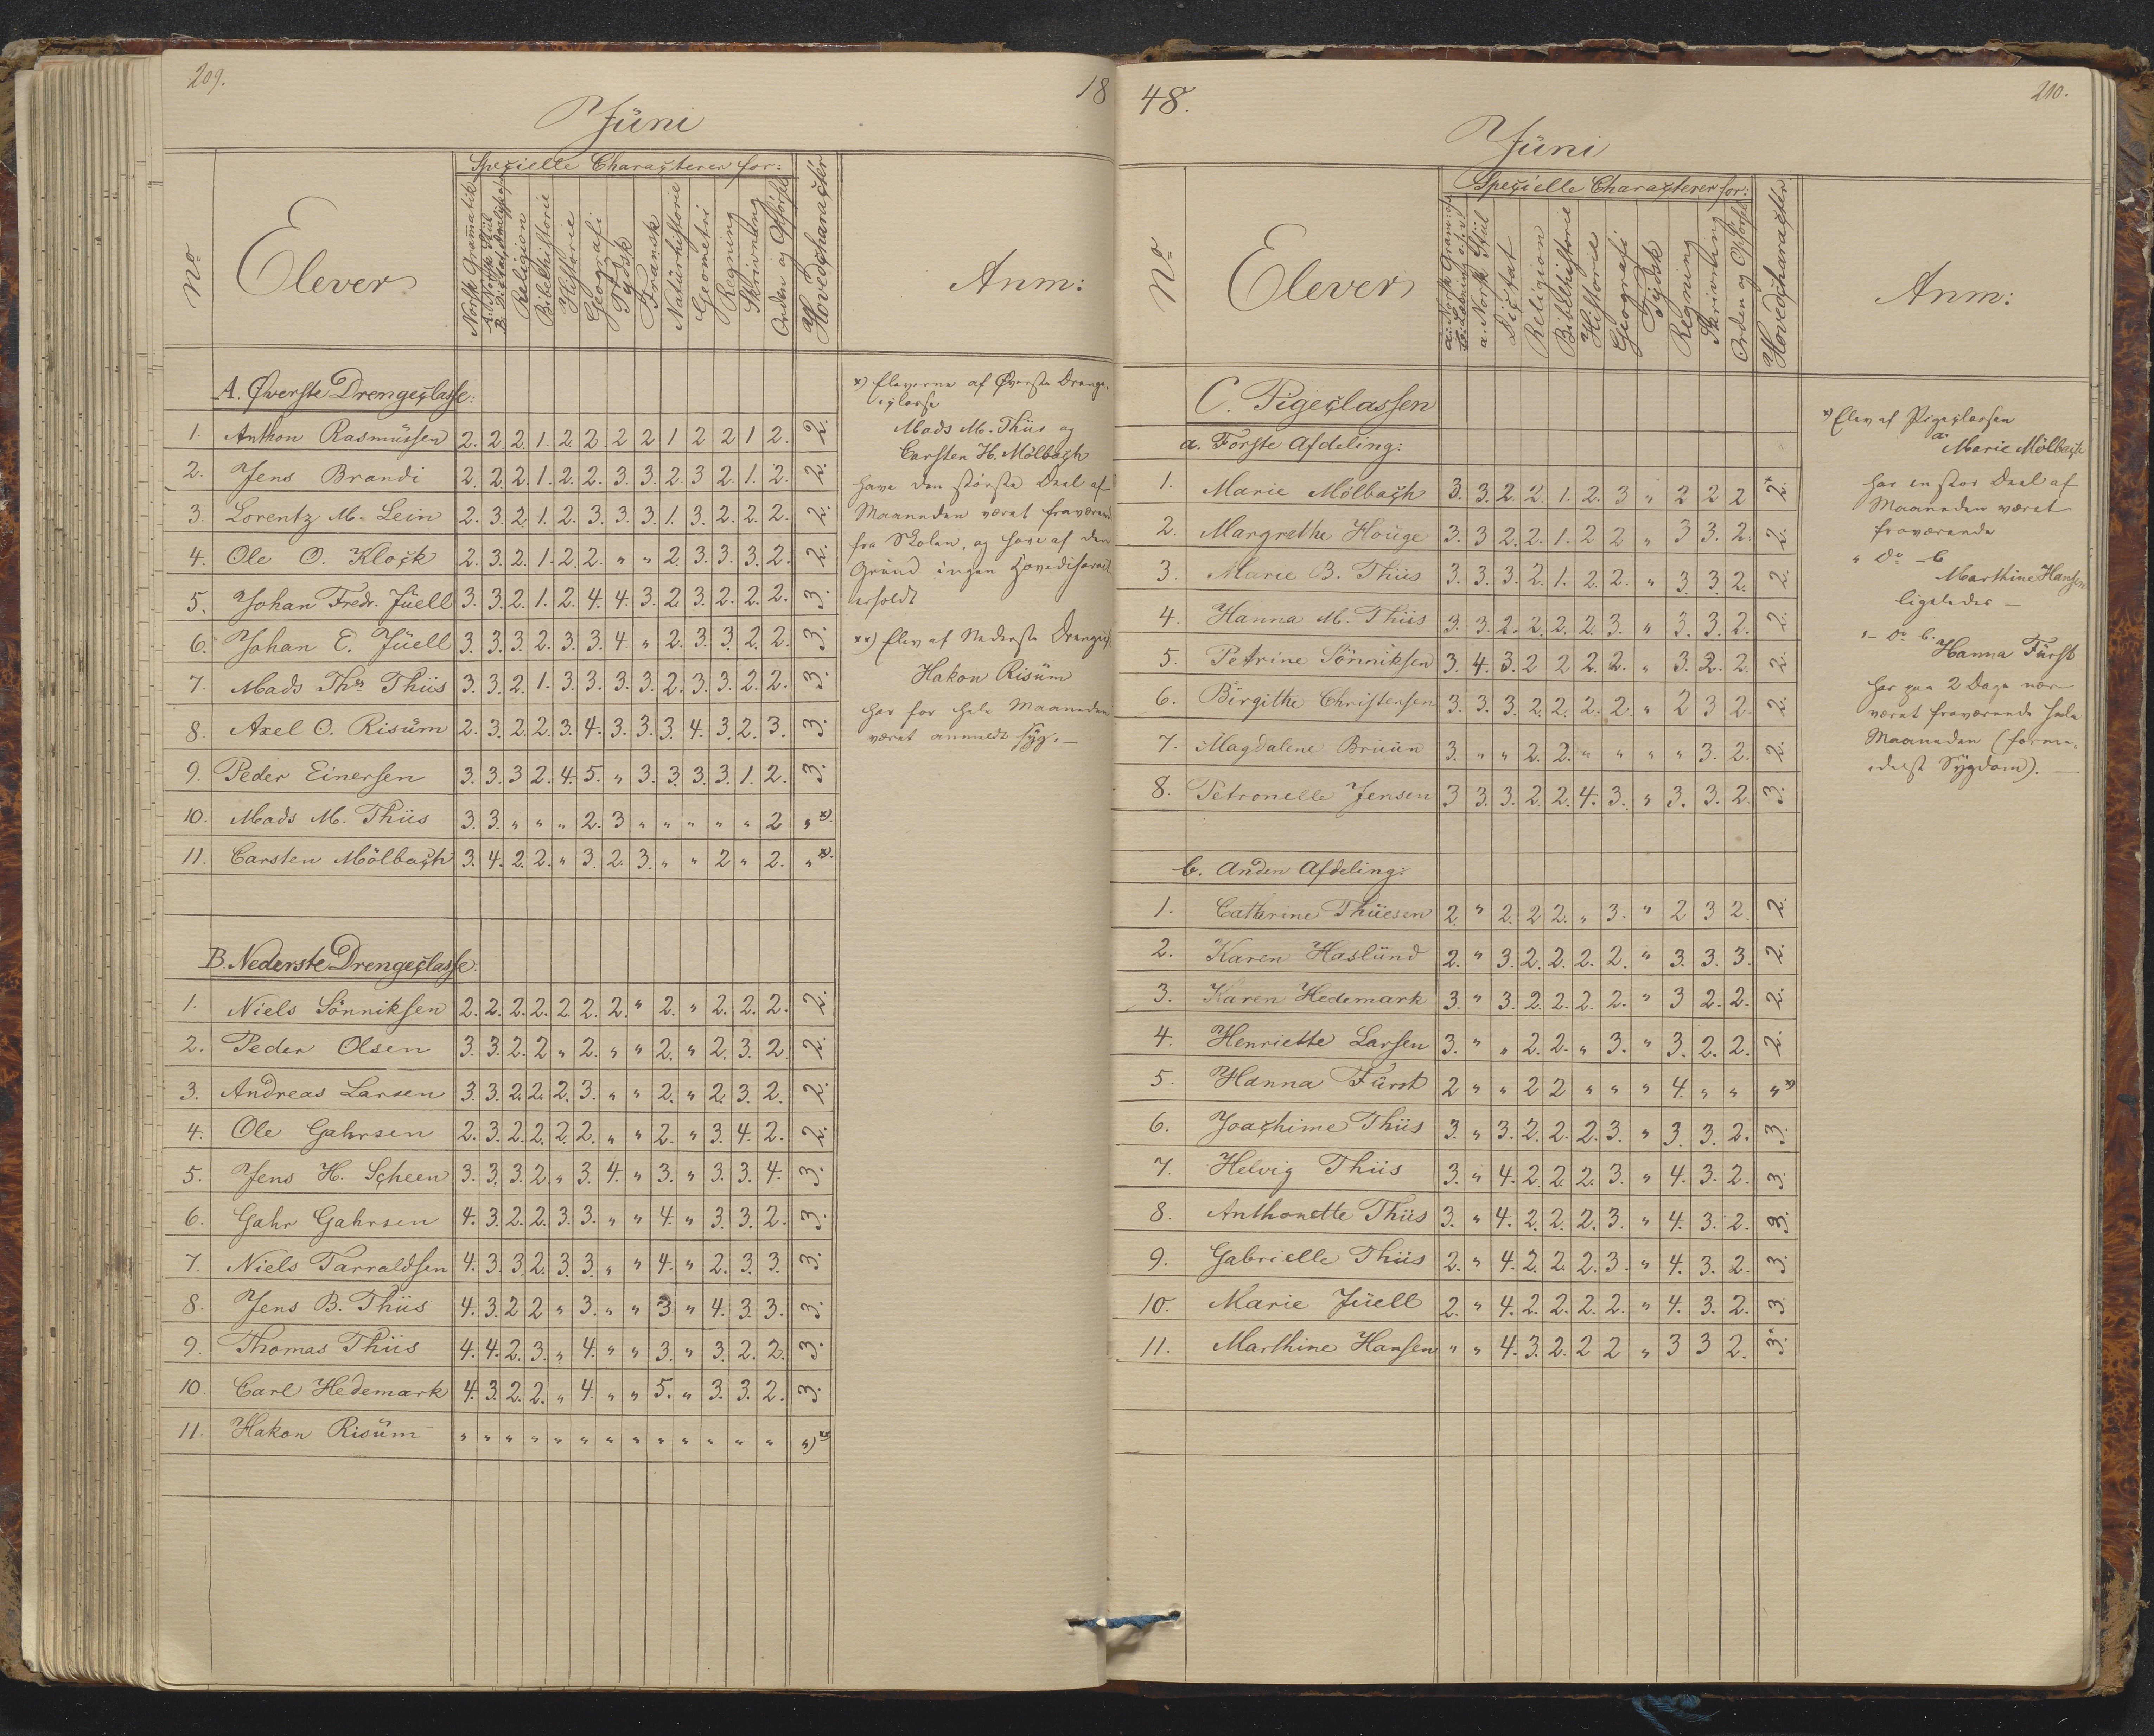 209.
18
Jüni
No
Elever
Specielle Characterer for:
Norsk Gramatik
A: Norsk Stiil
B: Dictat Analyse
Religion
Bibelhistorie
Historie
Geografi
Tydsk
Fransk
Natürhistorie
Geometri
Regning
Skrivning
Orden og Opførsel
Hovedcharacter
Anm:
A. Øverste Drengeclasse:
1. Anthon Rasmüssen 2. 2 2. 1. 2. 2. 2 2 1 2 2 1 2. 2.
2. Jens Brandi 2. 2. 2. 1. 2. 2. 3. 3. 2 3 2. 1. 2. 2.
3. Lorentz M. Lein 2. 3. 2. 1. 2. 3. 3. 3. 1. 3. 2. 2. 2. 2.
4. Ole O. Klock 2. 3. 2. 1. 2. 2. " " 2. 3. 3. 3. 2. 2.
5. Johan Fredr. Jüell 3. 3. 2. 1. 2. 4. 4. 3. 2. 3. 2. 2. 2. 3.
6. Johan E. Jüell 3. 3. 3. 2. 3. 3. 4. " 2. 3. 3. 2. 2. 3.
7. Mads Ths Thiis 3. 3. 2. 1. 3. 3. 3. 3. 2. 3. 3. 2. 2. 3.
8. Axel O. Risüm 2. 3. 2. 2. 3. 4. 3. 3. 3. 4. 3. 2. 3. 3.
9. Peder Einersen 3. 3. 3 2. 4. 5. " 3. 3. 3. 3. 1. 2. 3.
10. Mads M. Thiis 3. 3. " " " 2. 3 " " " " " 2 " x).
11. Carsten Mölbach 3. 4. 2. 2. " 3. 2. 3. " " 2 " 2. " x).
B. Nederste Drengeclasse:
1. Niels Sönniksen 2. 2. 2. 2. 2. 2. 2. " 2. " 2. 2. 2. 2.
2. Peder Olsen 3. 3. 2. 2 " 2. " " 2. " 2. 3. 2. 2.
3. Andreas Larsen 3. 3. 2. 2. 2. 3. " " 2. " 2. 3. 2. 2.
4. Ole Gahrsen 2. 3. 2. 2. 2. 2. " " 2. " 3. 4. 2. 2.
5. Jens H. Scheen 3. 3. 3. 2. " 3. 4. " 3. " 3. 3. 4. 3.
6. Gahr Gahrsen 4. 3. 2. 2. 3. 3. " " 4. " 3. 3. 2. 3.
7. Niels Tarraldsen 4. 3. 3. 2. 3. 3. " " 4. " 2. 3. 3. 3.
8. Jens B. Thiis 4. 3. 2 2 " 3. " " 3 " 4. 3. 3. 3.
9. Thomas Thiis 4. 4. 2. 3. " 4. " " 3. " 3. 2. 2. 3.
10. Carl Hedemark 4. 3. 2. 2. " 4. " " 5. " 3. 3. 2. 3.
11. Hakon Risüm " " " " " " " " " " " " " " xx)
x) Eleverne af Øverste Drenge-
classe
Mads M. Thiis og
Carsten H. Mölbach
have den største Deel af
Maaneden været fraværende
fra Skolen, og have af den
Grund ingen Hovedcharact.
erholdt
xx) Elev af Nederste Drengecl.
Hakon Risüm
har for hele Maaneden
været anmeldt syg. —
48.
210.
Jüni
No
Elever
Specielle Characterer for:
a: Norsk Gram:
b: Læsning
a. Norsk Stiil
Dictat
Religion
Bibelhistorie
Historie
Geografi
Tydsk
Regning
Skrivning
Orden og Opførsel
Hovedcharacter.
Anm:
C. Pigeclassen
a. Første Afdeling:
1. Marie Mölbach 3. 3. 2. 2. 1. 2. 3 " 2 2 2 2. x
2. Margrethe Houge 3. 3 2. 2. 1. 2 2 " 3 3. 2. 2.
3. Marie B. Thiis 3. 3. 3. 2. 1. 2. 2. " 3. 3 2. 2.
4. Hanna M. Thiis 3. 3. 2. 2. 2. 2. 3. " 3. 3. 2. 2.
5. Petrine Sönniksen 3. 4. 3. 2 2 2. 2. " 3. 2. 2. 2.
6. Birgithe Christensen 3. 3. 3. 2. 2. 2. 2. " 2 3 2. 2.
7. Magdalene Brüün 3. " " 2. 2. " " " " 3. 2. 2.
8. Petronelle Jensen 3 3. 3. 2. 2. 4. 3. " 3. 3. 2. 3.
b. Anden Afdeling:
1. Cathrine Thüesen 2. " 2. 2 2. " 3. " 2 3 2. 2.
2. Karen Haslünd 2. " 3. 2. 2. 2. 2. " 3. 3. 3. 2.
3. Karen Hedemark 3. " 3. 2. 2. 2. 2. " 3 2. 2. 2.
4. Henriette Larsen 3. " " 2. 2. " 3. " 3. 2. 2. 2.
5. Hanna Fürst 2 " " 2 2 " " " 4. " " " x)
6. Joachime Thiis 3. " 3. 2. 2. 2. 3. " 3. 3. 2. 3.
7. Helvig Thiis 3. " 4. 2. 2. 2. 3. " 4. 3. 2. 3.
8. Anthonette Thiis 3. " 4. 2. 2. 2. 3. " 4. 3. 2. 3.
9. Gabrielle Thiis 2. " 4. 2. 2. 2. 3. " 4. 3. 2. 3.
10. Marie Jüell 2. " 4. 2. 2. 2. 2. " 4. 3. 2. 3.
11. Marthine Hansen " " 4. 3. 2. 2 2 " 3 3 2. 3. x
x) Elev af Pigeclassen
a. Marie Mölbach
har en stor Deel af
Maaneden været
fraværende
" Do b
Marthine Hansen
ligeledes —
" Do b.
Hanna Fürst
har paa 2 Dage nær
været fraværende hele
Maaneden (forme-
delst Sygdom). —